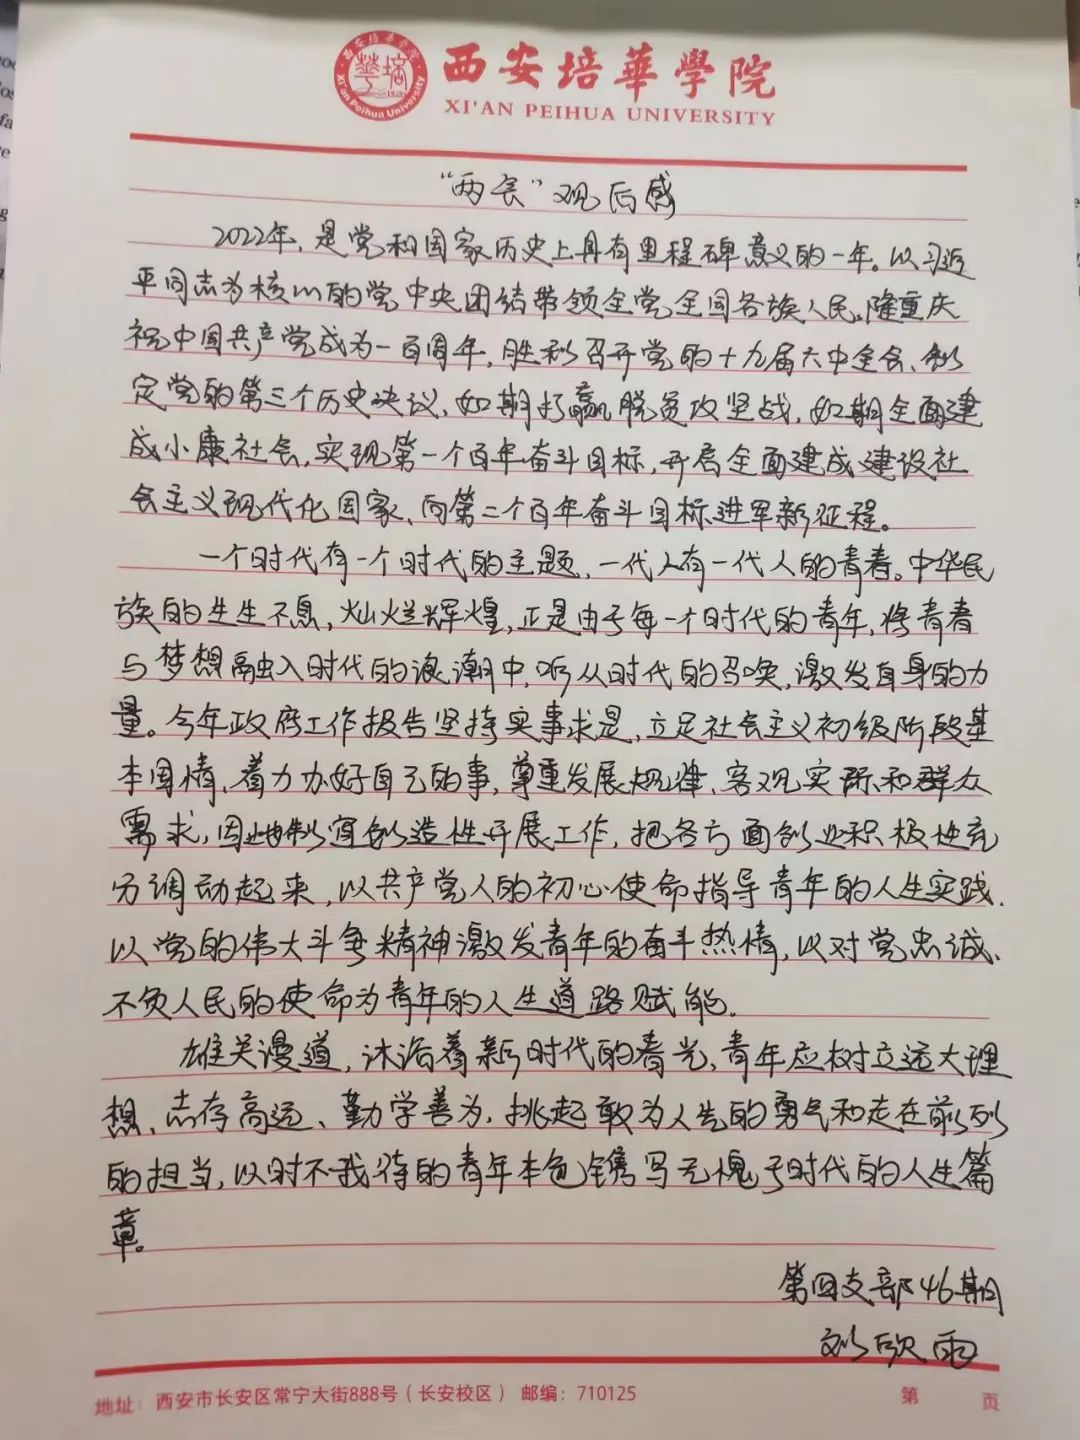 西安培華學院
XI'AN PEIHUA UNIVERSITY
“两会”观后感
2022年，是党和国家历史上具有里程碑意义的一年。以习近
平同志为核心的党中央团结带领全党全国各族人民，隆重庆
祝中国共产党成为一百周年，胜利召开党的十九届六中全会、制
定党的第三个历史决议，如期打赢脱贫攻坚战，如期全面建
成小康社会，实现第一个百年奋斗目标，开启全面建成建设社
会主义现代化国家、向第二个百年奋斗目标进军新征程。
一个时代有一个时代的主题，一代人有一代人的青春。中华民
族的生生不息，灿烂辉煌，正是由于每一个时代的青年，将青春
与梦想融入时代的浪潮中，听从时代的召唤，激发自身的力
量。今年政府工作报告坚持实事求是，立足社会主义初级阶段基
本国情，着力办好自己的事，尊重发展规律、客观实际和群众
需求，因地制宜创造性开展工作，把各方面创业积极性充
分调动起来，以共产党人的初心使命指导青年的人生实践，
以党的伟大斗争精神激发青年的奋斗热情，以对党忠诚、
不负人民的使命为青年的人生道路赋能。
雄关漫道，沐浴着新时代的春光，青年应树立远大理
想、志存高远、勤学善为，挑起敢为人先的勇气和走在前列
的担当，以时不我待的青年本色镌写无愧于时代的人生篇
章。
第四支部46期
刘欣雨
地址：西安市长安区常宁大街888号（长安校区） 邮编：710125 第 页